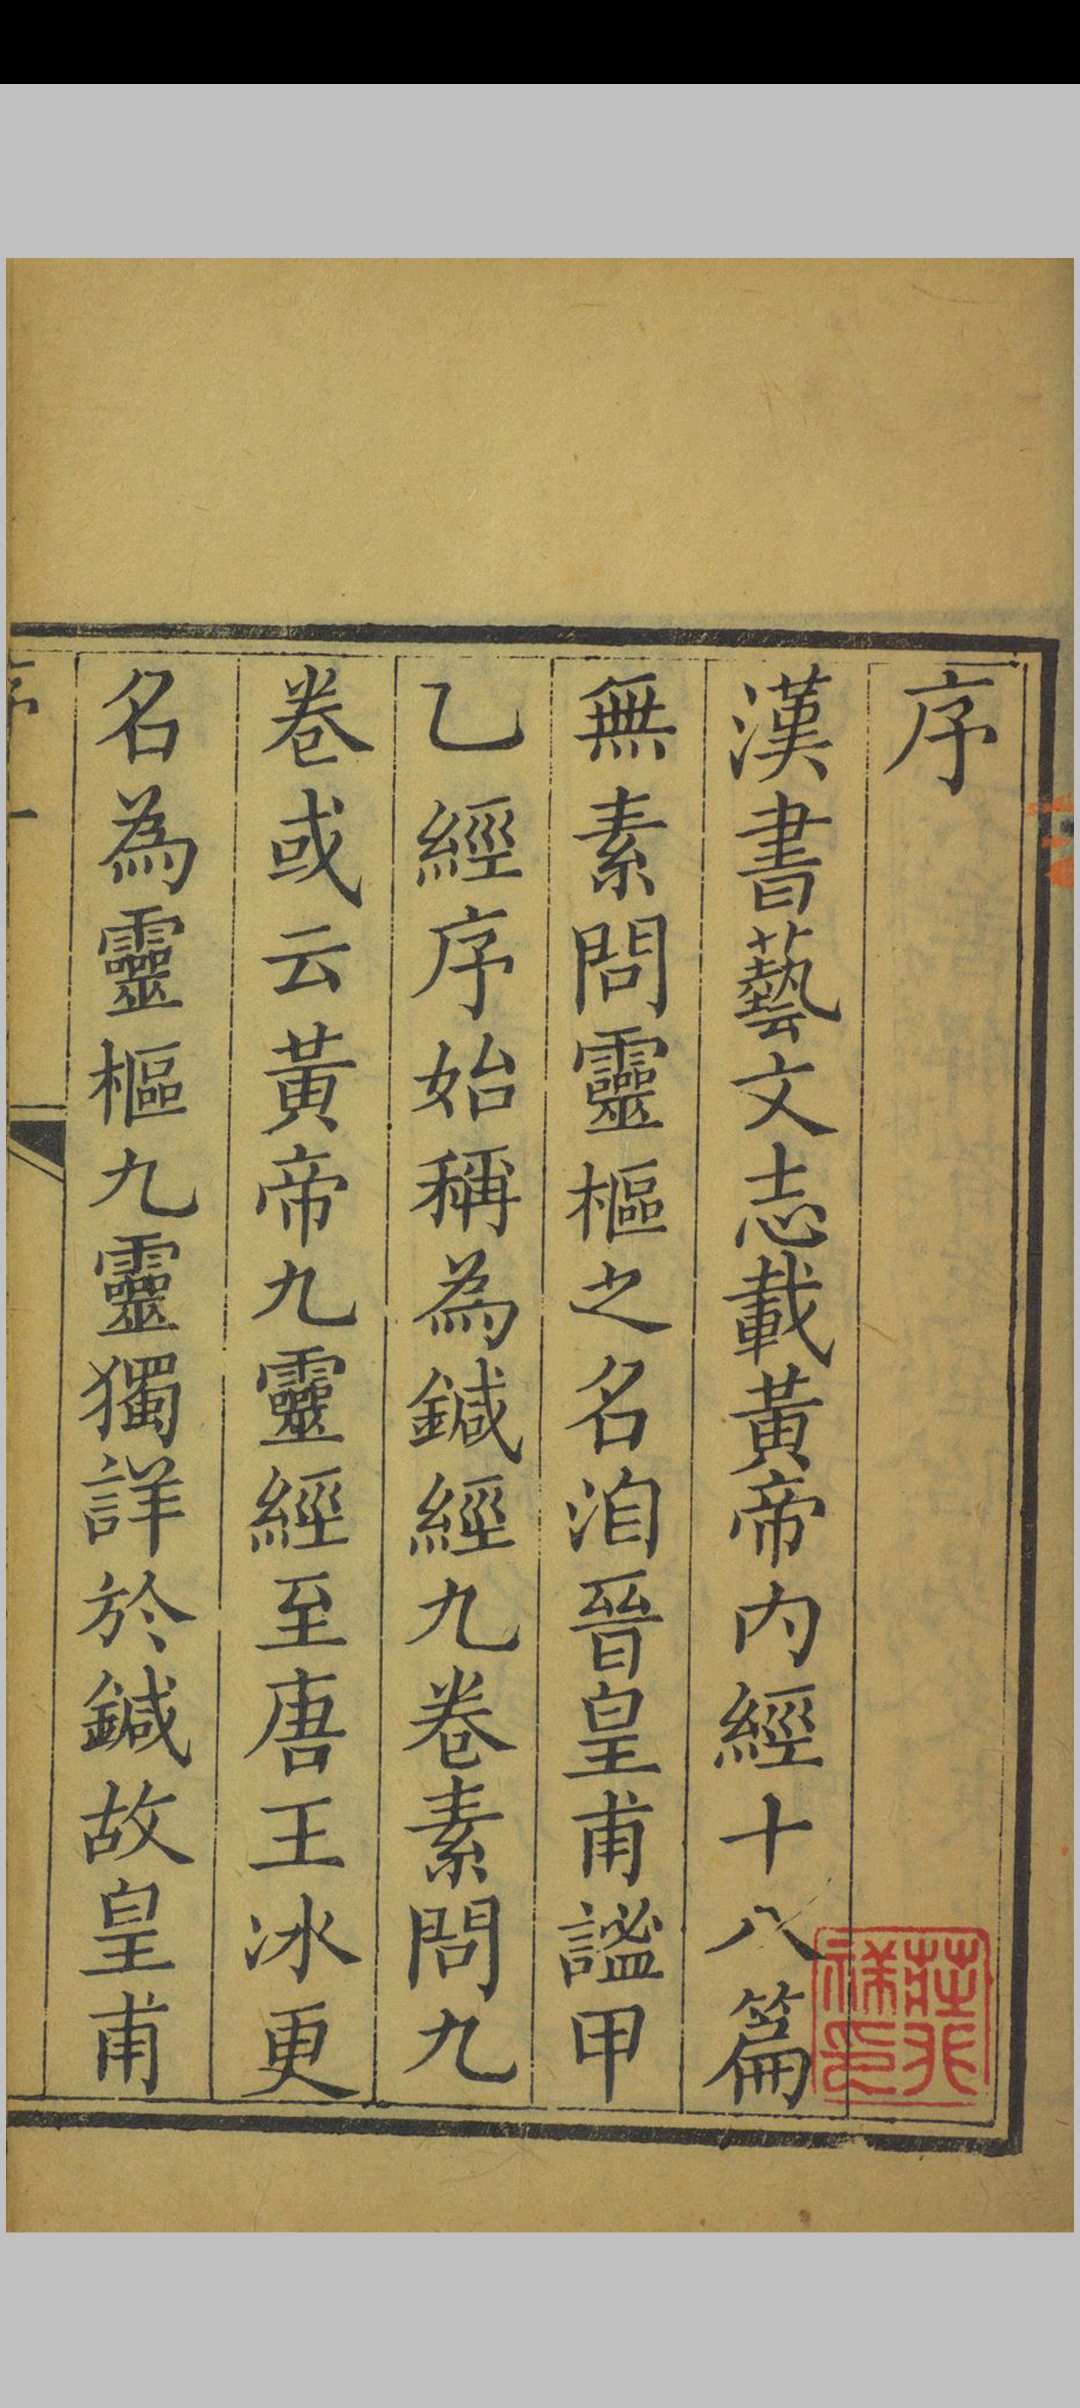 序
漢書藝文志載黃帝内經十八篇
無素問靈樞之名洎晉皇甫謐甲
乙經序始稱為鍼經九卷素問九
卷或云黃帝九靈經至唐王冰更
名為靈樞九靈獨詳於鍼故皇甫
序一